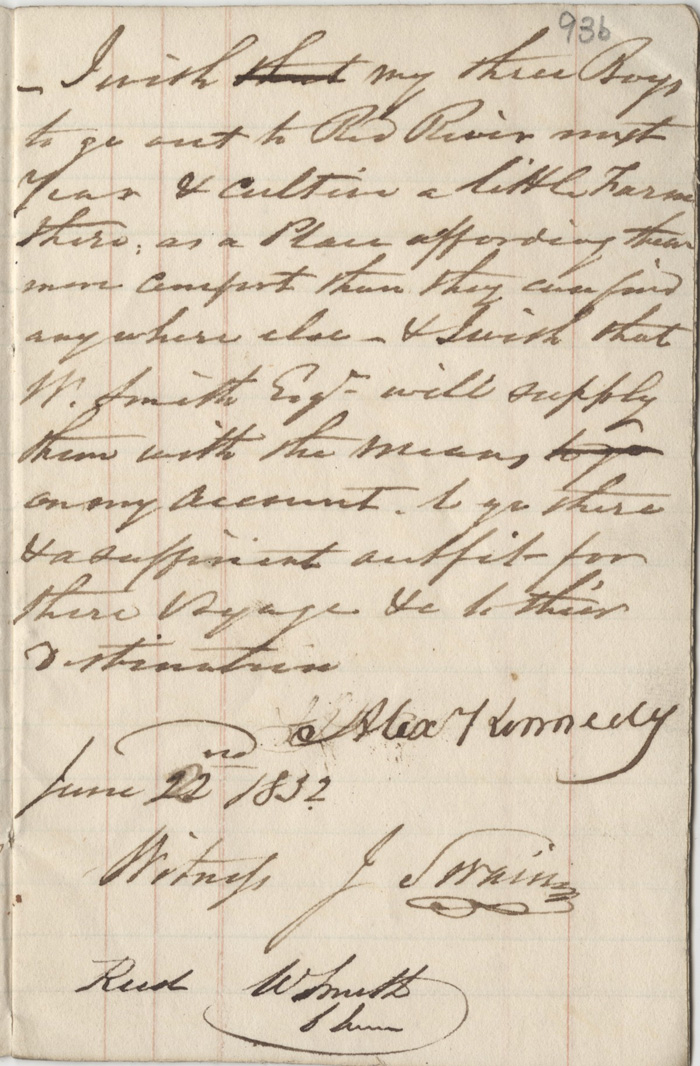 93b
- I wish that my three Boys
to go out to Red River next
Year & cultive a little Farm
there, as a Place affording them
more comfort than they can find
any where else - & I wish that
W. Smith Esqr - will supply
them with the means to go
on my account. to go there
& a suffinient outfit for
there Voyage &c to their
Destination
Alexr Kennedy
June 22nd 1832
Witness J Swain
Recd W Smith